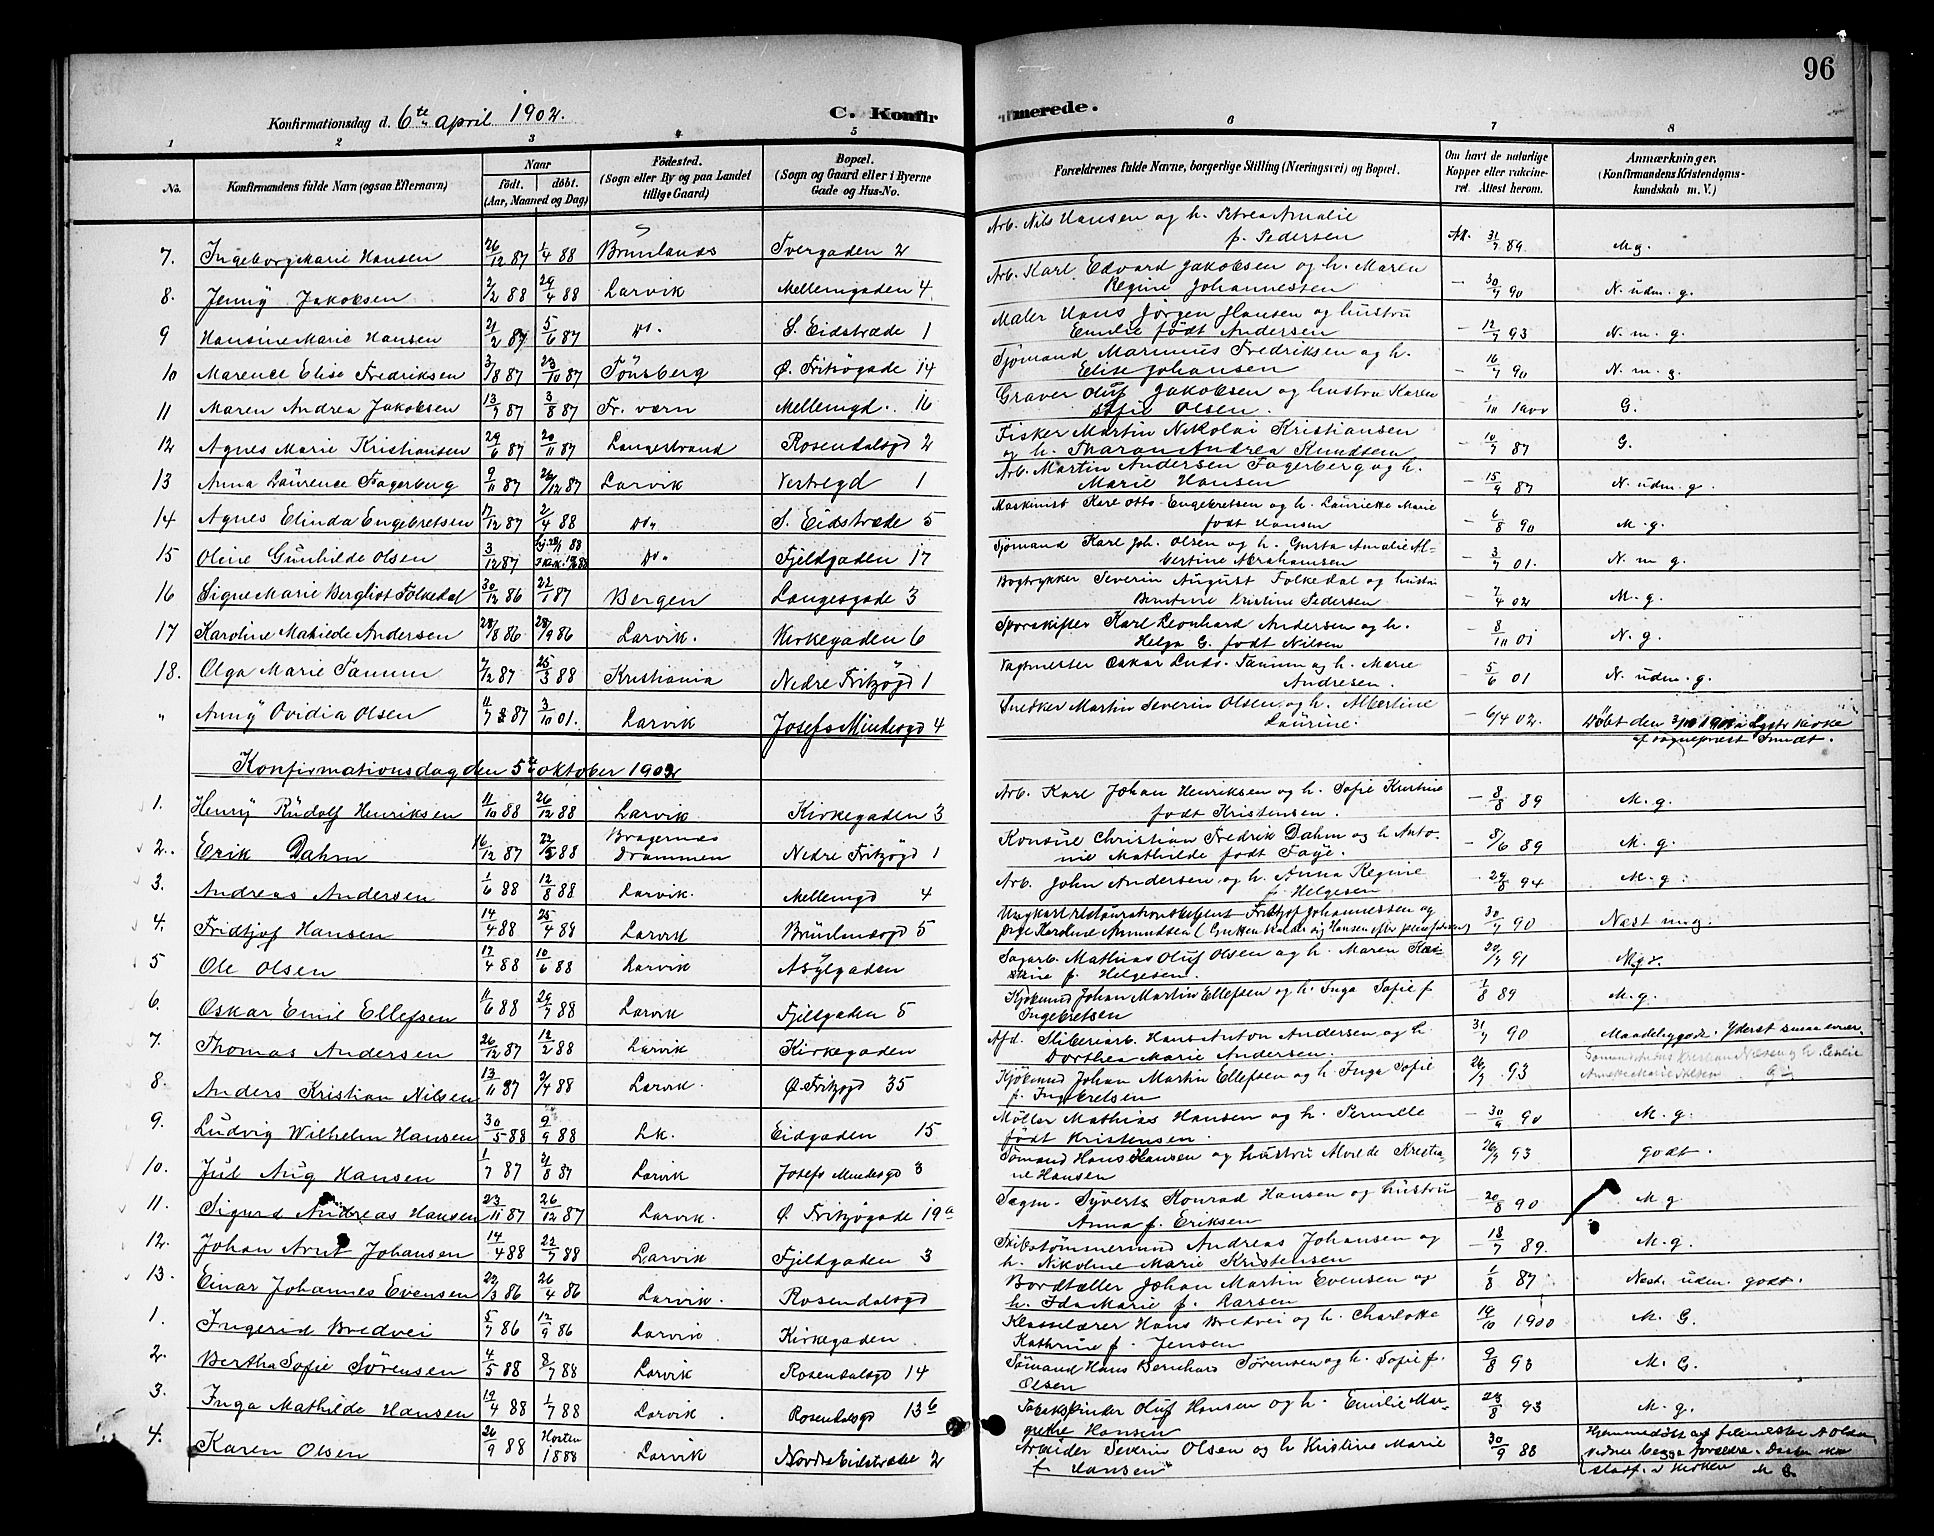 96
Konfirmationsdag d. 6te april 1902. C. Konfirmerede.
1 2 3 4 5 6 7 8
No. Konfirmandens fulde Navn (ogsaa Efternavn) Naar født. døbt. (Aar, Maaned og Dag) Fødested. (Sogn eller By og paa Landet tillige Gaard) Bopæl. (Sogn og Gaard eller i Byerne Gade og Hus-No. Forældrenes fulde Navne, borgerlige Stilling (Næringsvei) og Bopæl. Om havt de naturlige Kopper eller vaccineret. Attest herom. Anmærkninger. (Konfirmandens Kristendomskundskab m. V.)
Arb. Nils Hansen og h. Petrea Amalie
7. Ingeborg Marie Hansen 26/12 87 1/4 88 Brunlands Tvergaden 2 f. Pedersen 31/7 89 M g.
Arb. Karl Edvard Jakobsen og h. Maren
8. Jenny Jakobsen 2/2 88 29/4 88 Larvik Mellemgaden 4. Regine Johannessen – 30/7 90 N. udm. g.
Maler Hans Jørgen Hansen og hustru
9 Hansine Marie Hansen 21/2 87 5/6 87 Do. S. Eidstræde 1 Emilie født Andersen – 12/7 93 N. m. g.
Sjømand Marinius Fredriksen og h.
10 Marence Elise Fredriksen 3/8 87 23/10 87 Tönsberg Ø. Fritzøgade 14 Elise Johansen – 16/7 90 N. m. g.
Graver Oluf Jakobsen og hustru Karen
11 Maren Andrea Jakobsen 13/7 87 3/8 87 Fr. værn Mellemgd. 16 Sofie Olsen. – 1/11 1900 G.
Fisker Martin Nikolai Kristiansen
12 Agnes Marie Kristiansen 29/6 87 20/11 87 Langestrand Rosendalsgd 2 og h. Tharan Andrea Knudsen – 10/7 87 G.
Arb. Martin Andersen Fagerberg og h.
13 Anna Laurence Fagerberg 9/11 87 26/12 87 Larvik Vestregd 1 Marie Hansen – 15/9 87 N. udm. g.
Maskinist Karl Otto Engebretsen og h. Lauriette Marie
14 Agnes Elinda Engebretsen 17/12 87 2/4 88 Do. S. Eidstræde 5 født Hansen – 6/8 90 M. g.
Sjømand Karl Joh. Olsen og h. Gusta Amalie Al-
15 Oline Gunhilde Olsen 3/12 87 Do. Fjeldgaden 17 bertine Abrahamsen – 3/7 01. N. m g.
Bogtrykker Severin August Folkedal og hustru
16 Signe Marie Bergliot Folkedal 30/12 86 22/1 87 Bergen Langesgade 3 Berntine Kristine Pedersen – 7/4 02 M. g.
Sporskifter Karl Leonhard Andersen og h.
17 Karoline Mathilde Andersen 28/8 86 28/9 86 Larvik. Kirkegaden 6 Helga G. født Nilsen – 8/11 01 N. g.
Vagtmester Oskar Ludv. Tamm og h. Marie
18. Olga Marie Tamm 7/12 87 25/3 88 Kristiania Nedre Fritzøgd 1 Andresen. – 5/6 01 N. udm. g.
Snedker Martin Severin Olsen og h. Albertine
" Anny Ovidia Olsen 11/7 87 3/10 01. Larvik Josefs Mindesgd 4 Laurine. – 6/4 02. Døbt den 3/10 1901 i kirke
af sogneprest
Konfirmationsdag den 5te oktober 1902
Arb. Karl Johan Henriksen og h. Sofie Kristine
1. Henry Rudolf Henriksen 11/10 88 26/12 88 Larvik. Kirkegaden 3 født Kristensen. – 8/8 89 M. g.
Bragernes Konsul Christian Fredrik Dahm og h Anto-
2. Erik Dahm 16/12 87 22/5 88 Drammen Nedre Fritzøgd 1 nie Mathilde født Faye. – 8/6 89 M. g.
Arb. John Andersen og h. Anna Regine
3. Andreas Andersen 1/6 88 12/8 88 Larvik. Mellemgd 4 f. Helgesen. – 29/8 94 M. g.
Ungkarl Fritjof Johannessen og
4. Fridtjof Hansen 14/4 88 25/4 88 Larvik Brunlasgd 5 pige Karoline Amundsen 30/7 90 Næst m. g.
Sagarb. Mathias Oluf Olsen og h. Maren Kri-
5 Ole Olsen 17/4 88 10/6 88 Larvik Asylgaden stine f. Helgesen. 20/7 91 M. g.
Johan Martin Ellefsen og h. Inga Sofie f
6. Oskar Emil Ellefsen 11/6 88 29/7 88 Larvik Fjeldgaden 5 Ingebretsen 1/8 89 M. g.
Afd. Støberiarb. Hans Anton Andersen og h
7. Thomas Andersen 26/12 87 12/2 88 Larvik Kirkegaden Dorthea Marie Andersen. 31/7 90 Maadelig godt. Yderst
Johan Martin Ellefsen og h. Inga Sofie
8. Anders Kristian Nilsen 13/11 87 2/4 88 Larvik. Ø. Fritzøgd 35 f. Ingebretsen 26/7 93
Møller Mathias Hansen og h. Pernille
9. Ludvig Wilhelm Hansen 30/5 88 9/9 88 Lk. Eidgaden 15 født Kristensen. – 30/9 90 M. g.
Sømand Hans Hansen og hustru Alvilde Kristia-
10. Jul Aug Hansen 1/7 87 21/8 87 Larvik Josefs Mindesgd 3 ne Hansen 26/7 93 godt.
Sagm. Syvert Konrad Hansen og hustru
11. Sigurd Andreas Hansen 23/11 87 26/12 87 Larvik. Ø. Fritzøgade 19a Anna f. Eriksen – 20/8 90 M. g.
Skibstømmermand Andreas Johansen og
12. Johan Arnt Johansen 14/4 88 22/7 88 Larvik Fjeldgaden 3 h. Nikoline Marie Kristensen – 18/7 89. M. g.
Bordtæller Johan Martin Evensen og
13. Einar Johannes Evensen 22/3 86 26/4 86 Larvik. Rosendalsgd h. Ida Marie f. Larsen 1/8 87 Næst. udm. godt.
Klasselærer Hans Bredvei og h. Charlotte
1. Ingerid Bredvei 5/7 86 12/9 86 Larvik. Kirkegaden. Kathrine f. Jensen 19/10 1900 M. G.
Sømand Hans Bernhard Sørensen og h. Sofie f.
2. Bertha Sofie Sørensen 4/5 88 8/7 88 Larvik Rosendalsgd 14 Olsen 9/8 93 M. G.
Oluf Hansen og h. Emilie Mar-
3. Inga Mathilde Hansen 19/4 88 1/7 88 Larvik. Rosendalsgd 13b grethe Hansen 28/8 93 M. g.
Arbeider Severin Olsen og h Kristine Marie
4. Karen Olsen 26/9 88 Høsten 1888 Larvik Nordre Eidstræde 2 f. Hansen 30/9 88 Hjemmedøbt af Olsen
begge forældre. Daaben
stadf. i Kirken M G.